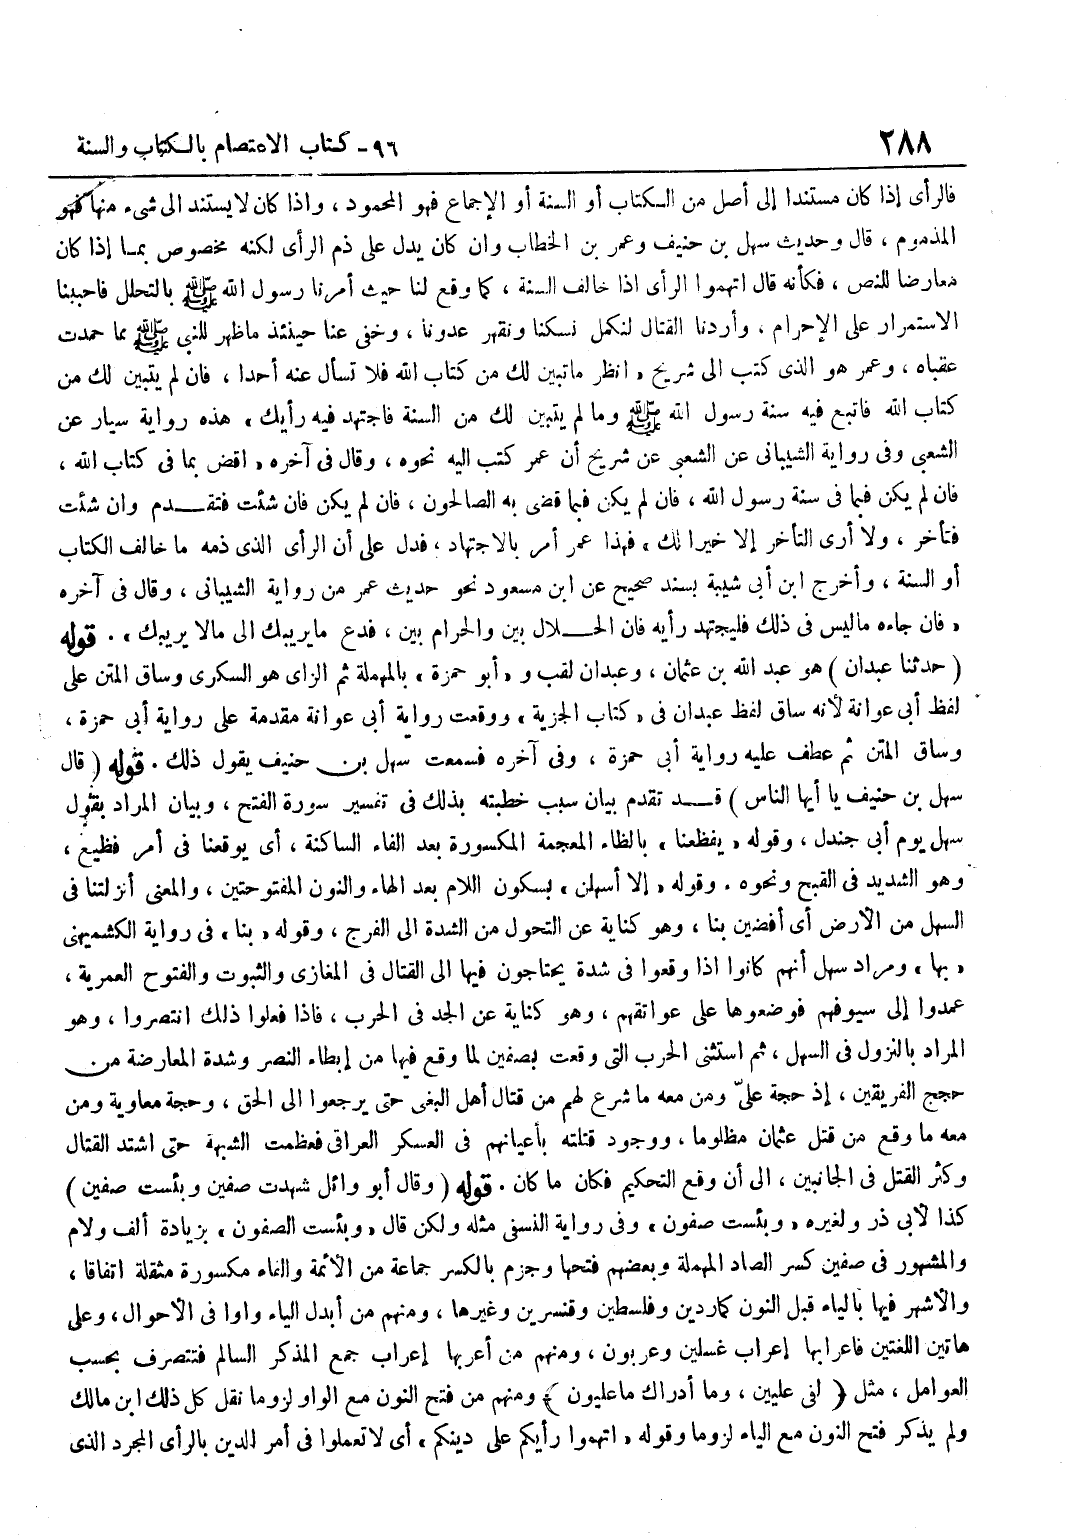 ٢٨٨
٩٦ - كتاب الاعتصام بالكتاب والسنة
فالرأى إذا كان مستندا إلى أصل من الكتاب أو السنة أو الإجماع فهو المحمود ، واذا كان لا يستند الى شىء منها فهو
المذموم ، قال وحديث سهل بن حنيف وعمر بن الخطاب وان كان يدل على ذم الرأى لكنه مخصوص بما إذا كان
معارضا للنص ، فكأنه قال اتهموا الرأى اذا خالف السنة ، كما وقع لنا حيث أمرنا رسول الله ﷺ بالتحلل فاحببنا
الاستمرار على الإحرام ، وأردنا القتال لنكمل نسكنا ونقهر عدونا ، وخفى عنا حينئذ ماظهر للنبى ﷺ مما حمدت
عقباه ، وعمر هو الذى كتب الى شريح « انظر ماتبين لك من كتاب الله فلا تسأل عنه أحدا ، فان لم يتبين لك من
كتاب الله فاتبع فيه سنة رسول الله ﷺ وما لم يتبين لك من السنة فاجتهد فيه رأيك » هذه رواية سيار عن
الشعبى وفى رواية الشيبانى عن الشعبى عن شريح أن عمر كتب اليه نحوه ، وقال فى آخره « اقض بما فى كتاب الله ،
فان لم يكن فبما فى سنة رسول الله ، فان لم يكن فبما قضى به الصالحون ، فان لم يكن فان شئت فتقدم وان شئت
فتأخر ، ولا أرى التأخر إلا خيرا لك » فهذا عمر أمر بالاجتهاد ، فدل على أن الرأى الذى ذمه ما خالف الكتاب
أو السنة ، وأخرج ابن أبى شيبة بسند صحيح عن ابن مسعود نحو حديث عمر من رواية الشيبانى ، وقال فى آخره
« فان جاءه ماليس فى ذلك فليجتهد رأيه فان الحلال بين والحرام بين ، فدع مايريبك الى مالا يريبك » . قوله
( حدثنا عبدان ) هو عبد الله بن عثمان ، وعبدان لقب و « أبو حمزة » بالمهملة ثم الزاى هو السكرى وساق المتن على
لفظ أبى عوانة لأنه ساق لفظ عبدان فى « كتاب الجزية » ووقعت رواية أبى عوانة مقدمة على رواية أبى حمزة ،
وساق المتن ثم عطف عليه رواية أبى حمزة ، وفى آخره فسمعت سهل بن حنيف يقول ذلك . قوله ( قال
سهل بن حنيف يا أيها الناس ) قد تقدم بيان سبب خطبته بذلك فى تفسير سورة الفتح ، وبيان المراد بقول
سهل يوم أبى جندل ، وقوله « يفظعنا » بالظاء المعجمة المكسورة بعد الفاء الساكنة ، أى يوقعنا فى أمر فظيع ،
وهو الشديد فى القبح ونحوه . وقوله « إلا أسهلن » بسكون اللام بعد الهاء والنون المفتوحتين ، والمعنى أنزلتنا فى
السهل من الأرض أى أفضين بنا ، وهو كناية عن التحول من الشدة الى الفرج ، وقوله « بنا » فى رواية الكشميهنى
« بها » ومراد سهل أنهم كانوا اذا وقعوا فى شدة يحتاجون فيها الى القتال فى المغازى والثبوت والفتوح العمرية ،
عمدوا إلى سيوفهم فوضعوها على عواتقهم ، وهو كناية عن الجد فى الحرب ، فاذا فعلوا ذلك انتصروا ، وهو
المراد بالنزول فى السهل ، ثم استثنى الحرب التى وقعت بصفين لما وقع فيها من إبطاء النصر وشدة المعارضة من
حجج الفريقين ، إذ حجة علىّ ومن معه ما شرع لهم من قتال أهل البغى حتى يرجعوا الى الحق ، وحجة معاوية ومن
معه ما وقع من قتل عثمان مظلوما ، ووجود قتلته بأعيانهم فى العسكر العراقى فعظمت الشبهة حتى اشتد القتال
وكثر القتل فى الجانبين ، الى أن وقع التحكيم فكان ما كان . قوله ( وقال أبو وائل شهدت صفين وبئست صفين )
كذا لأبى ذر ولغيره « وبئست صفون » وفى رواية النسفى مثله ولكن قال « وبئست الصفون » بزيادة ألف ولام
والمشهور فى صفين كسر الصاد المهملة وبعضهم فتحها وجزم بالكسر جماعة من الأئمة والفاء مكسورة مثقلة اتفاقا ،
والأشهر فيها بالياء قبل النون كماردين وفلسطين وقنسرين وغيرها ، ومنهم من أبدل الياء واوا فى الأحوال ، وعلى
هاتين اللغتين فاعرابها إعراب غسلين وعربون ، ومنهم من أعربها إعراب جمع المذكر السالم فتتصرف بحسب
العوامل ، مثل ﴿ لفى عليين ، وما أدراك ماعليون ﴾ ومنهم من فتح النون مع الواو لزوما نقل كل ذلك ابن مالك
ولم يذكر فتح النون مع الياء لزوما وقوله « اتهموا رأيكم على دينكم » أى لاتعملوا فى أمر الدين بالرأى المجرد الذى